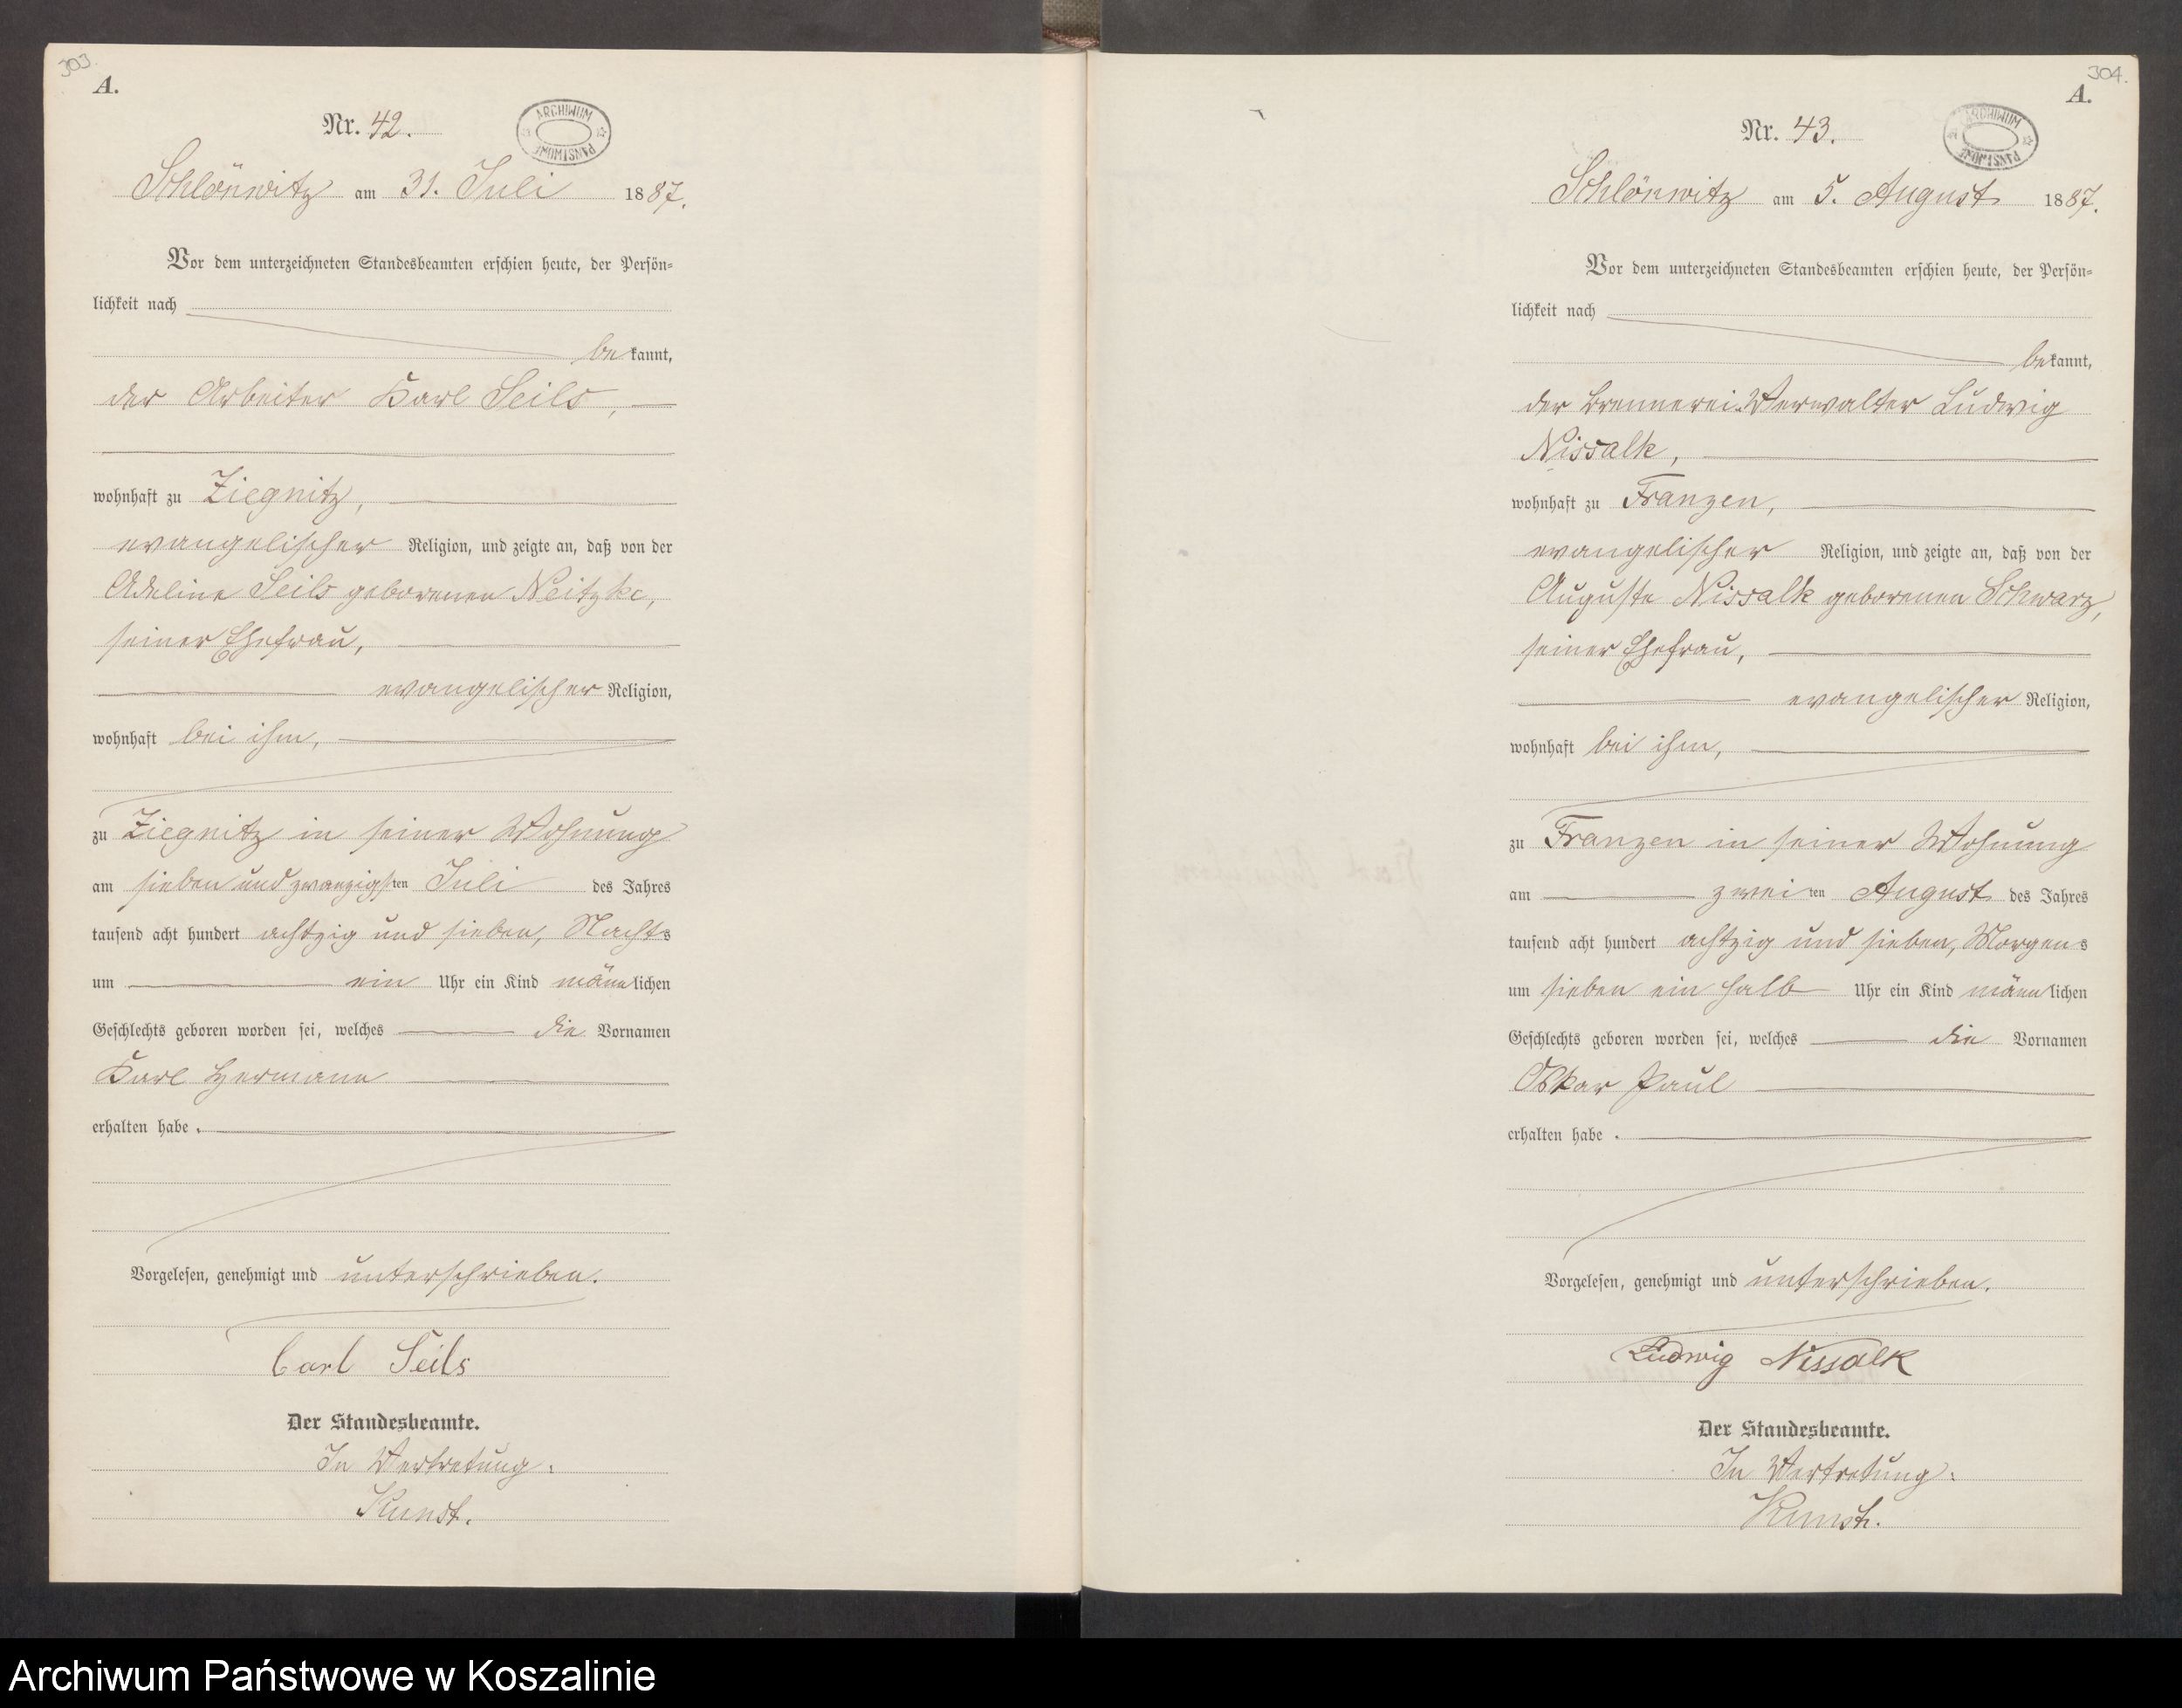 303.
A.
Nr. 42.
ARCHIWUM PAŃSTWOWE
Schlönwitz am 31. Juli 1887.
Vor dem unterzeichneten Standesbeamten erschien heute, der Persön-
lichkeit nach
bekannt,
der Arbeiter Karl Seils,
wohnhaft zu Ziegnitz,
evangelischer Religion, und zeigte an, daß von der
Adeline Seils geborenen Neitzke,
seiner Ehefrau,
evangelischer Religion,
wohnhaft bei ihm,
zu Ziegnitz in seiner Wohnung
am sieben und zwanzigsten Juli des Jahres
tausend acht hundert achtzig und sieben, Nachts
um ein Uhr ein Kind männlichen
Geschlechts geboren worden sei, welches die Vornamen
Karl Hermann
erhalten habe.
Vorgelesen, genehmigt und unterschrieben.
Carl Seils
Der Standesbeamte.
In Vertretung:
Kunst.
304.
A.
Nr. 43.
ARCHIWUM PAŃSTWOWE
Schlönwitz am 5. August 1887.
Vor dem unterzeichneten Standesbeamten erschien heute, der Persön-
lichkeit nach
bekannt,
der Brennerei-Verwalter Ludwig
Nissalk,
wohnhaft zu Franzen,
evangelischer Religion, und zeigte an, daß von der
Auguste Nissalk geborenen Schwarz,
seiner Ehefrau,
evangelischer Religion,
wohnhaft bei ihm,
zu Franzen in seiner Wohnung
am zweiten August des Jahres
tausend acht hundert achtzig und sieben, Morgens
um sieben ein halb Uhr ein Kind männlichen
Geschlechts geboren worden sei, welches die Vornamen
Oskar Paul
erhalten habe.
Vorgelesen, genehmigt und unterschrieben.
Ludwig Nissalk
Der Standesbeamte.
In Vertretung:
Kunst.
Archiwum Państwowe w Koszalinie